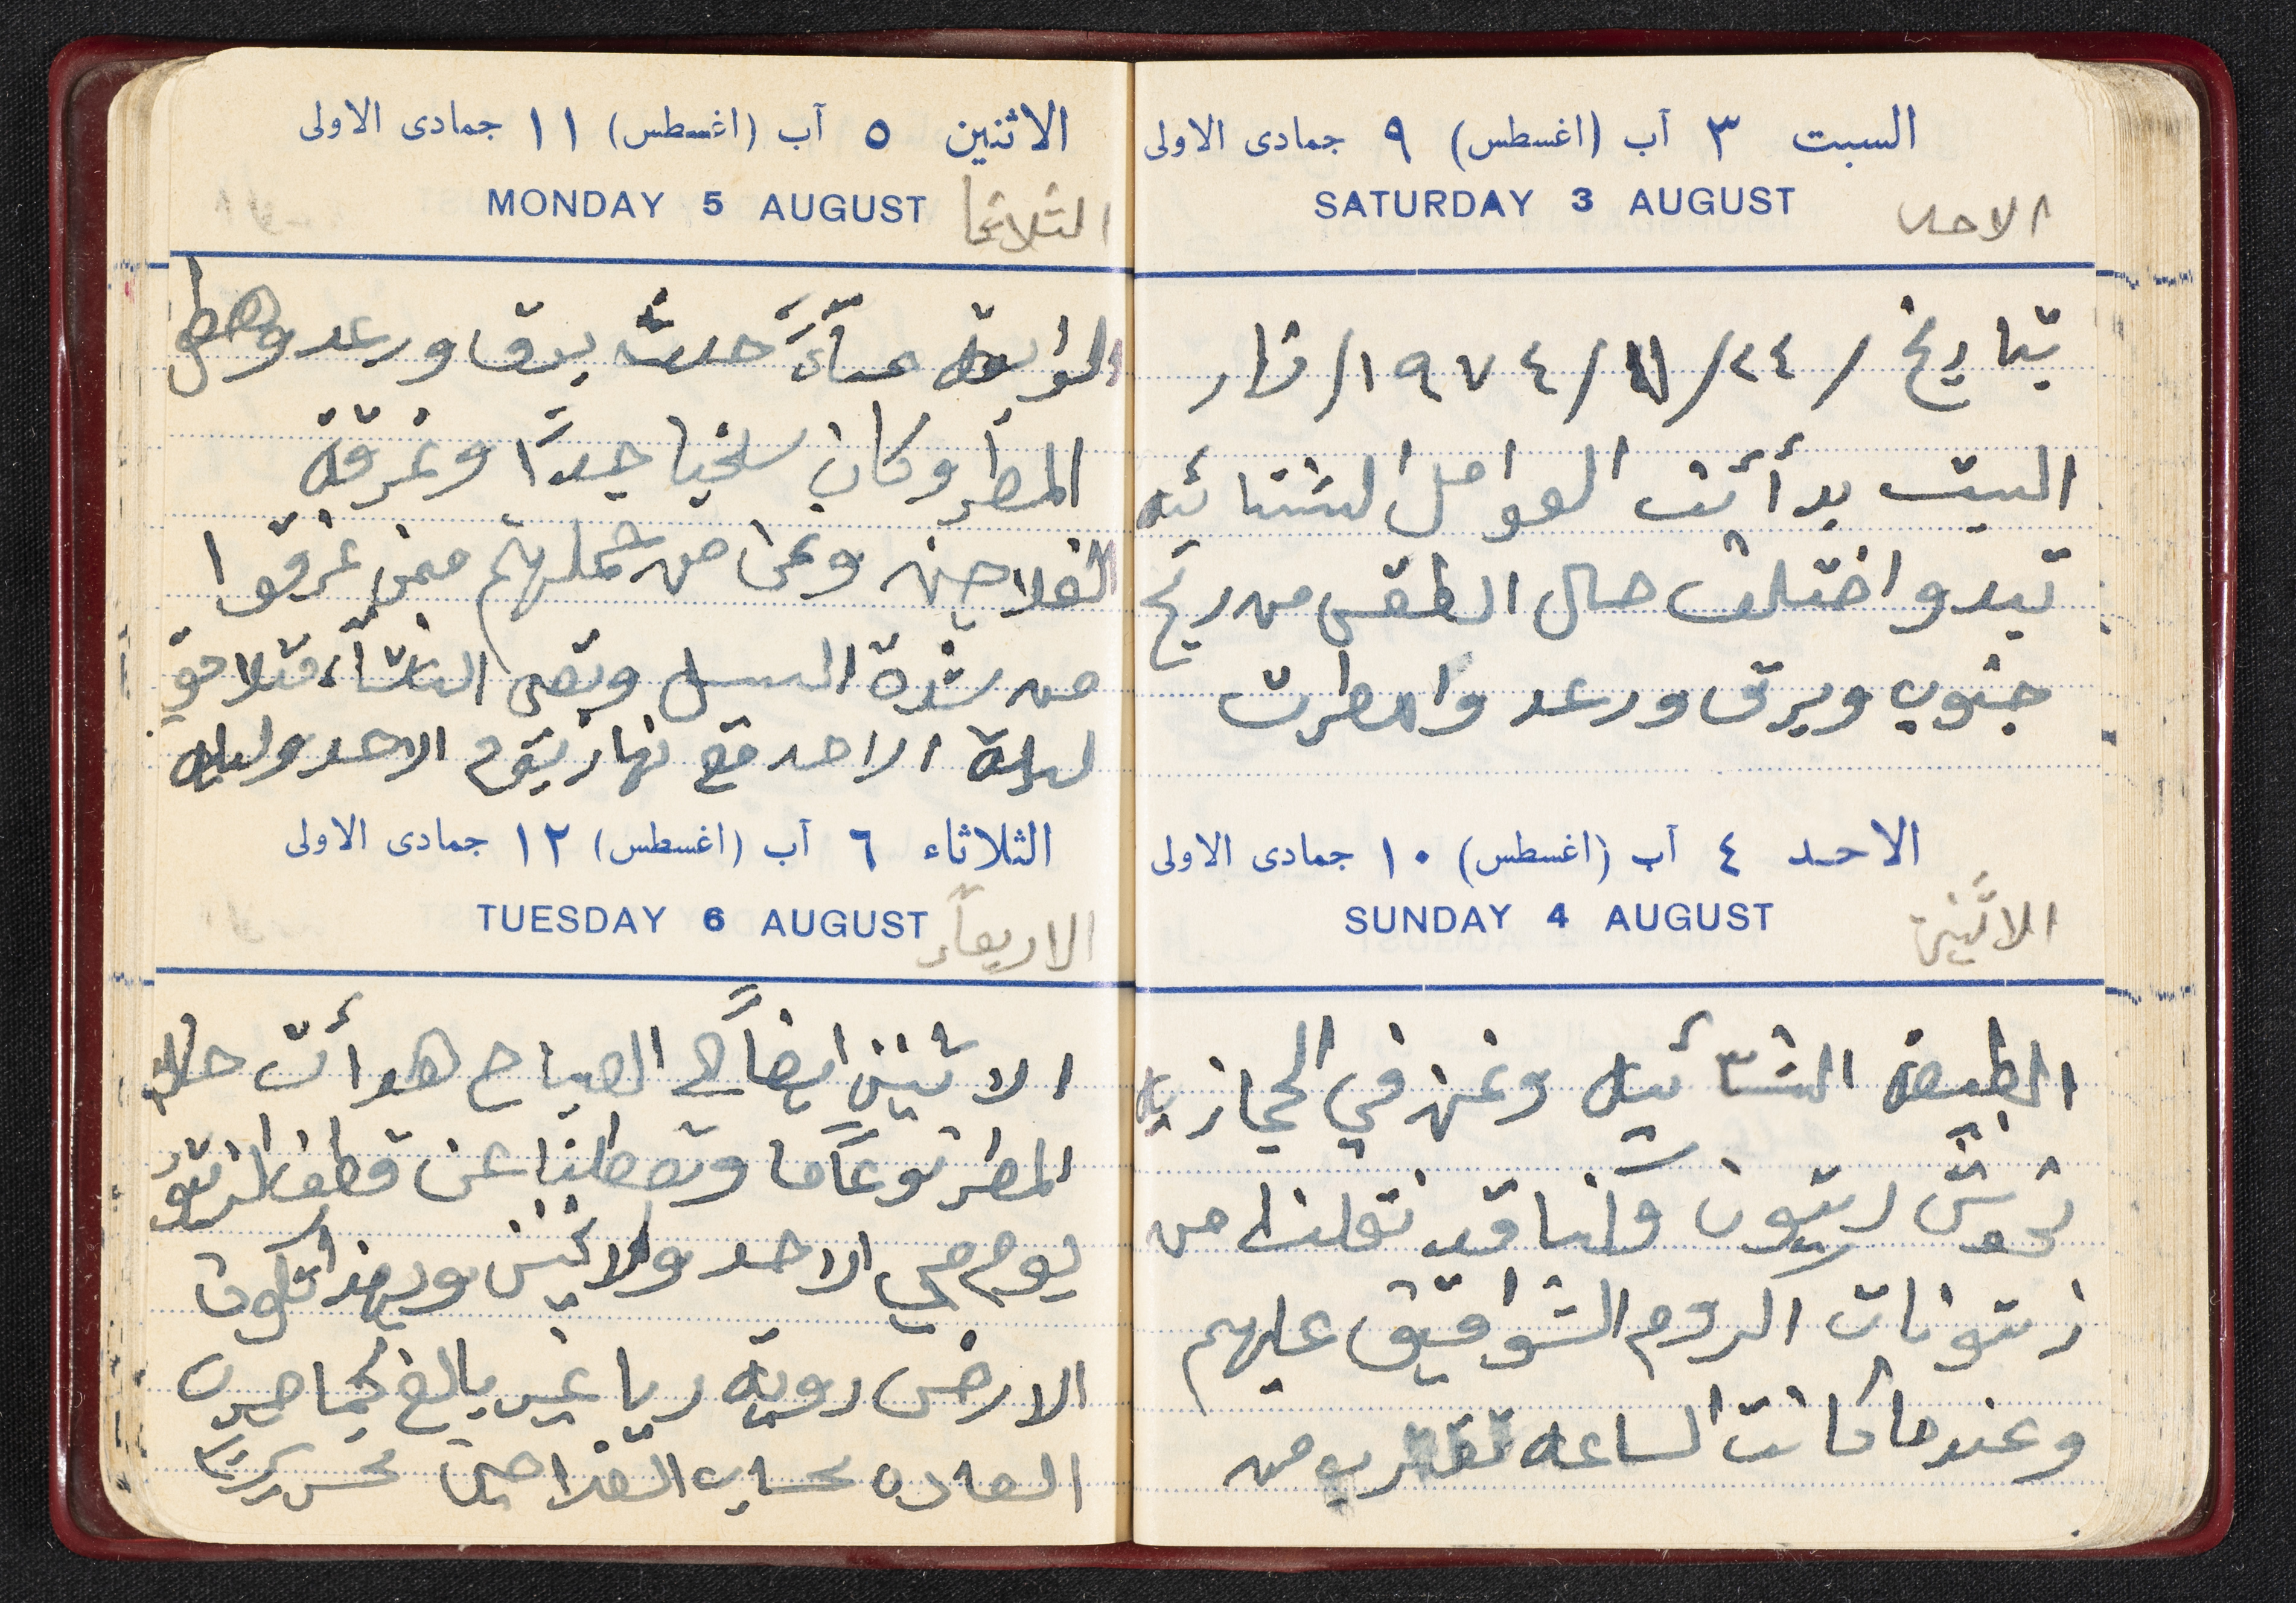 السبت ٣ آب (اغسطس) ٩ جمادى الاولى
SATURDAY 3 AUGUST
الاحد
بتاريخ / ٢٤/ ١١/ ١٩٧٤/
البيت بدأئت العوامل الشتائيه
تبدو اختلف حال الطقس من ريح
جنوب وبرق ورعد وامطرت
الاحد ٤ آب (اغسطس) ١٠ جمادى الاولى
SUNDAY 4 AUGUST
الاثنين
الطبيعه الشتائيه ونحن في الحجازيه
نحوش زيتون وكنا قد نقلنا من
زيتونات الروم الشواقيق عليهم
وعندما كانت الساعه تقترب من
الاثنين ٥ آب (اغسطس) ١١ جمادى الاولى
MONDAY 5 AUGUST
الثلاثا
الرابعه مسآءً حدث برق ورعد وهطل
المطر وكان سخيا جدًا وغرقة
الفلاحين ونحن من جملهتم ممن غرقوا
من شدة السيل وبقى الشتآء متلاحق
ليلة الاحد مع نهار يوم الاحد وليله
الثلاثاء ٦ آب (اغسطس) ١٢ جمادى الاولى
TUESDAY 6 AUGUST
الاربعاء
الاثنين ايضاً في الصباح هدأت حالة
المطر نوعاً ما وتعطلنا عن قطف الزيتون
يوم مي الاحد ولاثنين وبهذا تكون
الارض رويه ريا غير بالغ كما جرت
العاده بحساب الفلاحين